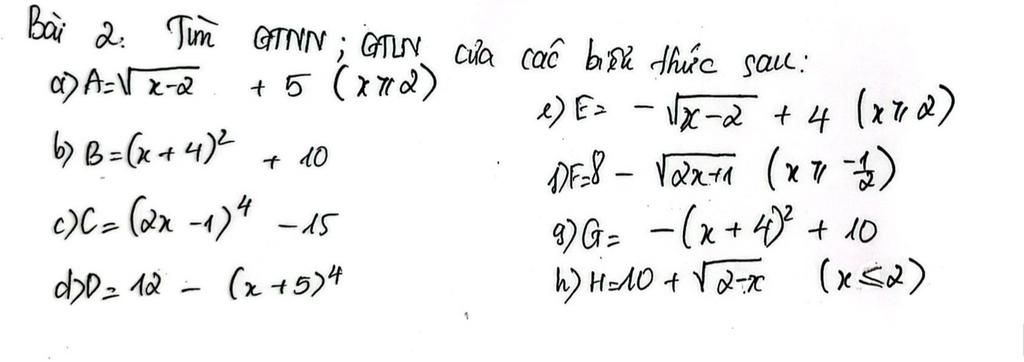 Bài 2: Tìm GTNN; GTLN của các biểu thức sau:
a) A=√x-2 + 5 (x ⩾ 2)
b) B=(x+4)² + 10
c) C=(2x-1)⁴ -15
d) D= 12 - (x+5)⁴
e) E= -√x-2 + 4 (x ⩾ 2)
f) F=8 - √2x+1 (x ⩾ -1/2)
g) G= -(x+4)² + 10
h) H=10 + √2-x (x≤2)